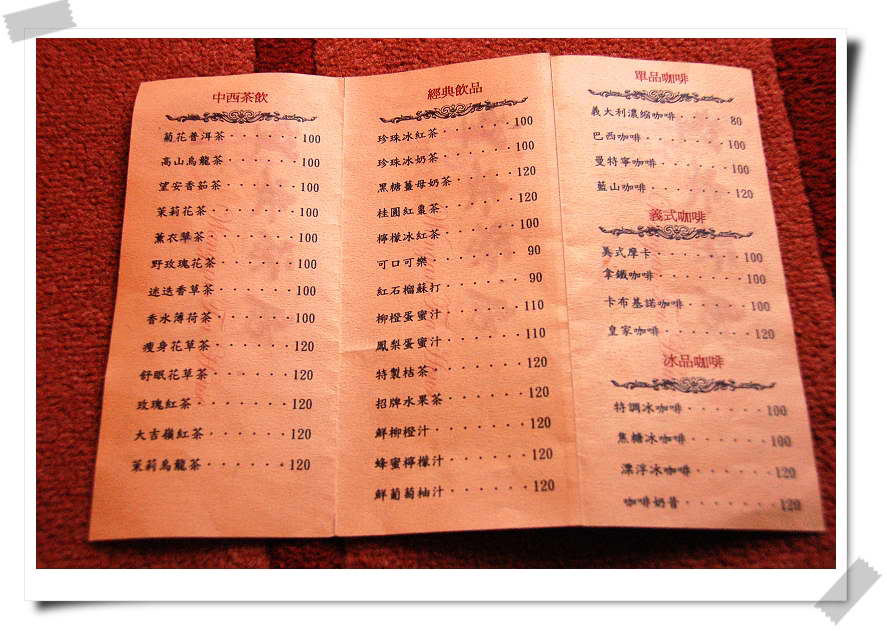 中西茶飲
菊花普洱茶‧‧‧‧‧‧‧100
高山烏龍茶‧‧‧‧‧‧‧100
望安香茹茶‧‧‧‧‧‧‧100
茉莉花茶‧‧‧‧‧‧‧‧100
薰衣草茶‧‧‧‧‧‧‧‧100
野玫瑰花茶‧‧‧‧‧‧‧100
迷迭香草茶‧‧‧‧‧‧‧100
香水薄荷茶‧‧‧‧‧‧‧100
瘦身花草茶‧‧‧‧‧‧‧120
舒眠花草茶‧‧‧‧‧‧‧120
玫瑰紅茶‧‧‧‧‧‧‧‧120
大吉嶺紅茶‧‧‧‧‧‧‧120
茉莉烏龍茶‧‧‧‧‧‧‧120
經典飲品
珍珠冰紅茶‧‧‧‧‧‧100
珍珠冰奶茶‧‧‧‧‧‧100
黑糖薑母奶茶‧‧‧‧‧120
桂圓紅棗茶‧‧‧‧‧‧120
檸檬冰紅茶‧‧‧‧‧‧100
可口可樂‧‧‧‧‧‧‧90
紅石榴蘇打‧‧‧‧‧‧90
柳橙蛋蜜汁‧‧‧‧‧‧110
鳳梨蛋蜜汁‧‧‧‧‧‧110
特製桔茶‧‧‧‧‧‧‧120
招牌水果茶‧‧‧‧‧‧120
鮮柳橙汁‧‧‧‧‧‧‧120
蜂蜜檸檬汁‧‧‧‧‧‧120
鮮葡萄柚汁‧‧‧‧‧‧120
單品咖啡
義大利濃縮咖啡‧‧‧‧80
巴西咖啡‧‧‧‧‧‧100
曼特寧咖啡‧‧‧‧‧100
藍山咖啡‧‧‧‧‧‧120
義式咖啡
美式摩卡‧‧‧‧‧‧100
拿鐵咖啡‧‧‧‧‧‧100
卡布基諾咖啡‧‧‧‧100
皇家咖啡‧‧‧‧‧‧120
冰品咖啡
特調冰咖啡‧‧‧‧‧100
焦糖冰咖啡‧‧‧‧‧100
漂浮冰咖啡‧‧‧‧‧120
咖啡奶昔‧‧‧‧‧‧120